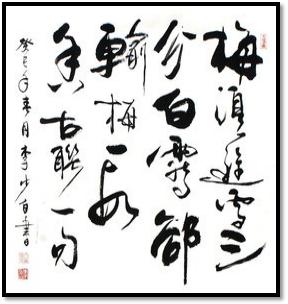 梅須遜雪三
分白雪卻
輸梅一段
香古聯一句
癸巳年春月李沙白書